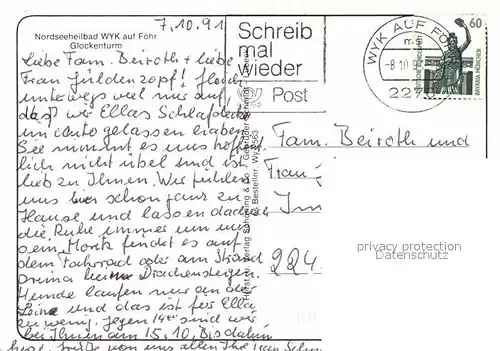 7.10.91
Nordseeheilbad WYK auf Föhr
Glockenturm
Schreib
mal
wieder
Post
WYK AUF FÖHR
-8.10.
2270
60
DEUTSCHE BUNDESPOST
BAVARIA MÜNCHEN
Liebe Fam. Beiroth + liebe
Frau Güldenzopf! Gleich
unterwegs viel mir auf,
daß wir Ellas Schlafdecke
im Auto gelassen haben.
Sie nimmt es uns hoffent
lich nicht übel und ist
lieb zu Ihnen. Wir fühlen
uns hier schon ganz zu
Hause und lassen
die Ruhe immer um uns
sein. Moritz findet es auf
dem Fahrrad oder am Strand
prima beim Drachensteigen.
Hunde laufen nur an der
Leine und das ist für Ella
zu wenig. gegen 14 sind wir
bei Ihnen am 15.10. Bis dahin
Grüße von uns allen Ihre Frau
Verlag Schöning & Co + Gebrüder Schmidt
Bestellnr. Wy
Fam. Beiroth und
Frau
Im
224
privacy protection
Datenschutz